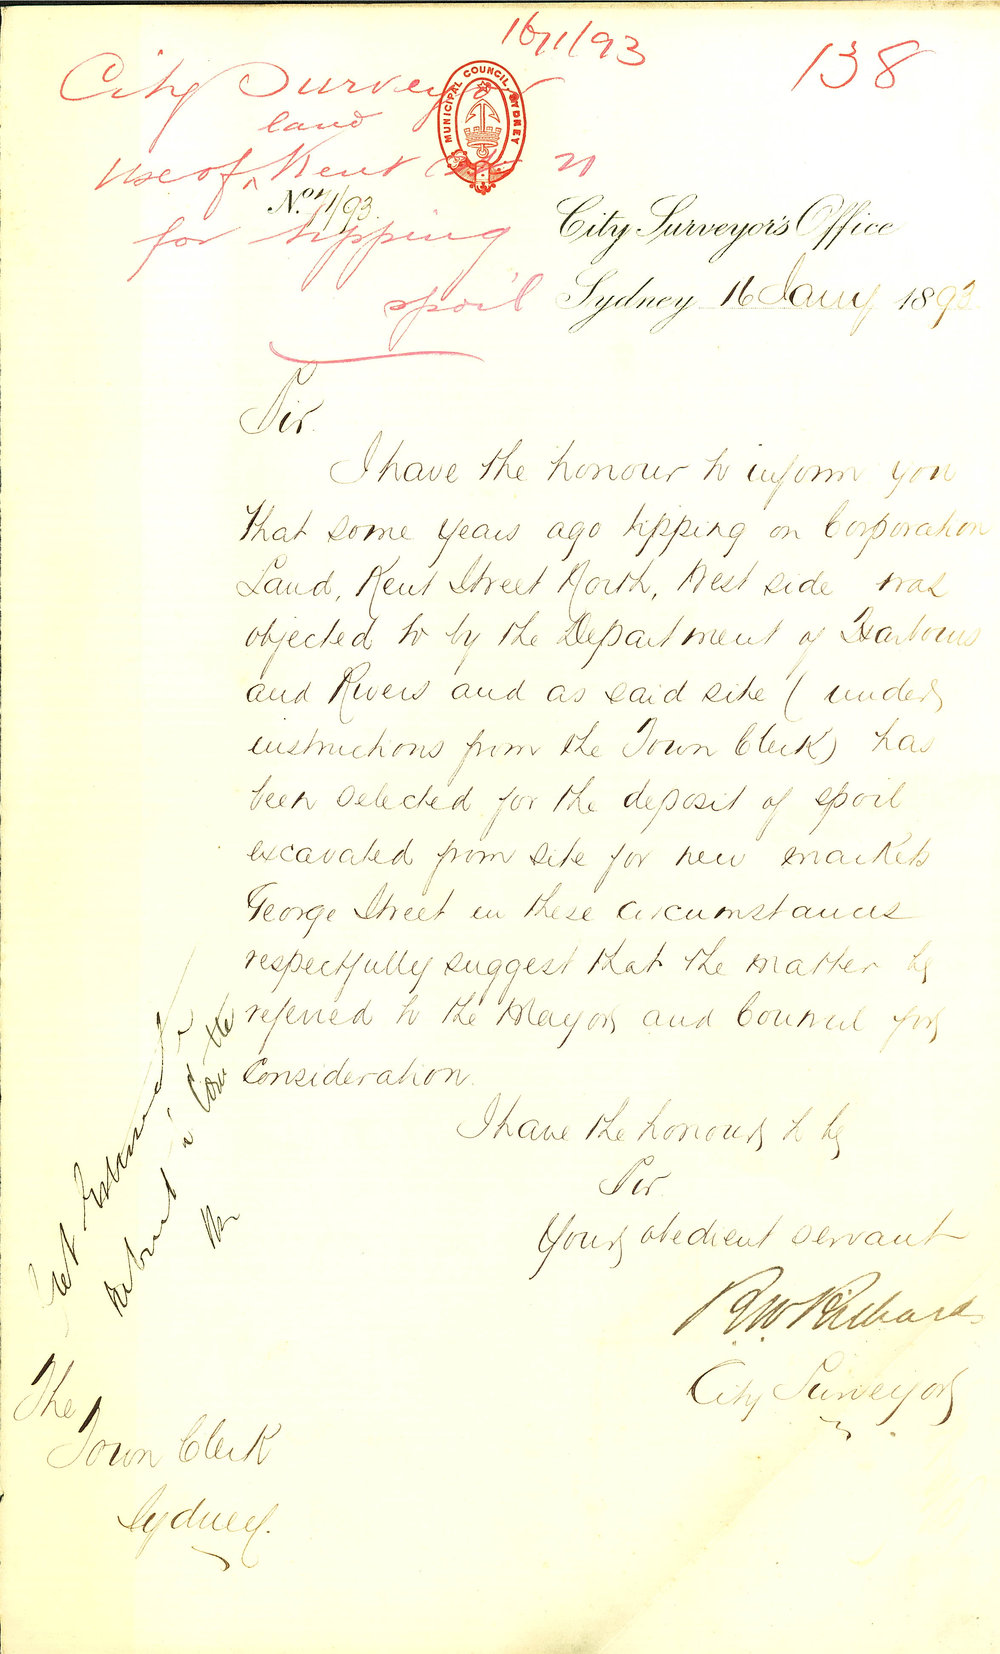 16/1/93
138
City Surveyor
land
Use of ^ Kent St N
for tipping
spoil
MUNICIPAL COUNCIL, SYDNEY
No. 71/93.
City Surveyor's Office
Sydney 16 Jany 1893
Sir.
I have the honour to inform you
that some years ago tipping on Corporation
Land, Kent Street North, West side was
objected to by the Department of Harbours
and Rivers and as said site (under
instructions from the Town Clerk) has
been selected for the deposit of spoil
excavated from site for new markets
George Street in these circumstances
respectfully suggest that the matter be
referred to the Mayor and Council for
Consideration.
I have the honour to be
Sir.
Your obedient servant
R.W. Richards
City Surveyor
The
Town Clerk
Sydney.